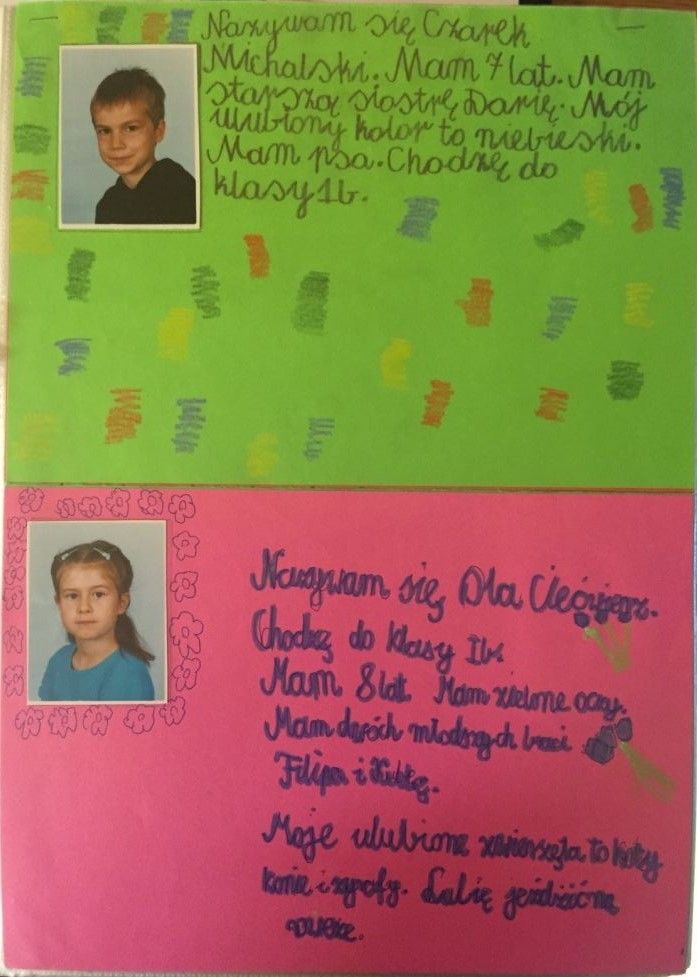 Nazywam się Czarek
Michalski. Mam 7 lat. Mam
starszą siostrę Darię. Mój
ulubiony kolor to niebieski.
Mam psa. Chodzę do
klasy 1b.
Nazywam się
Chodzę do klasy Ib.
Mam 8 lat Mam zielone oczy.
Mam dwóch młodszych braci
Filipa i Kubę.
Moje ulubione zwierzęta to koty
konie i żyrafy. Lubię jeździć na